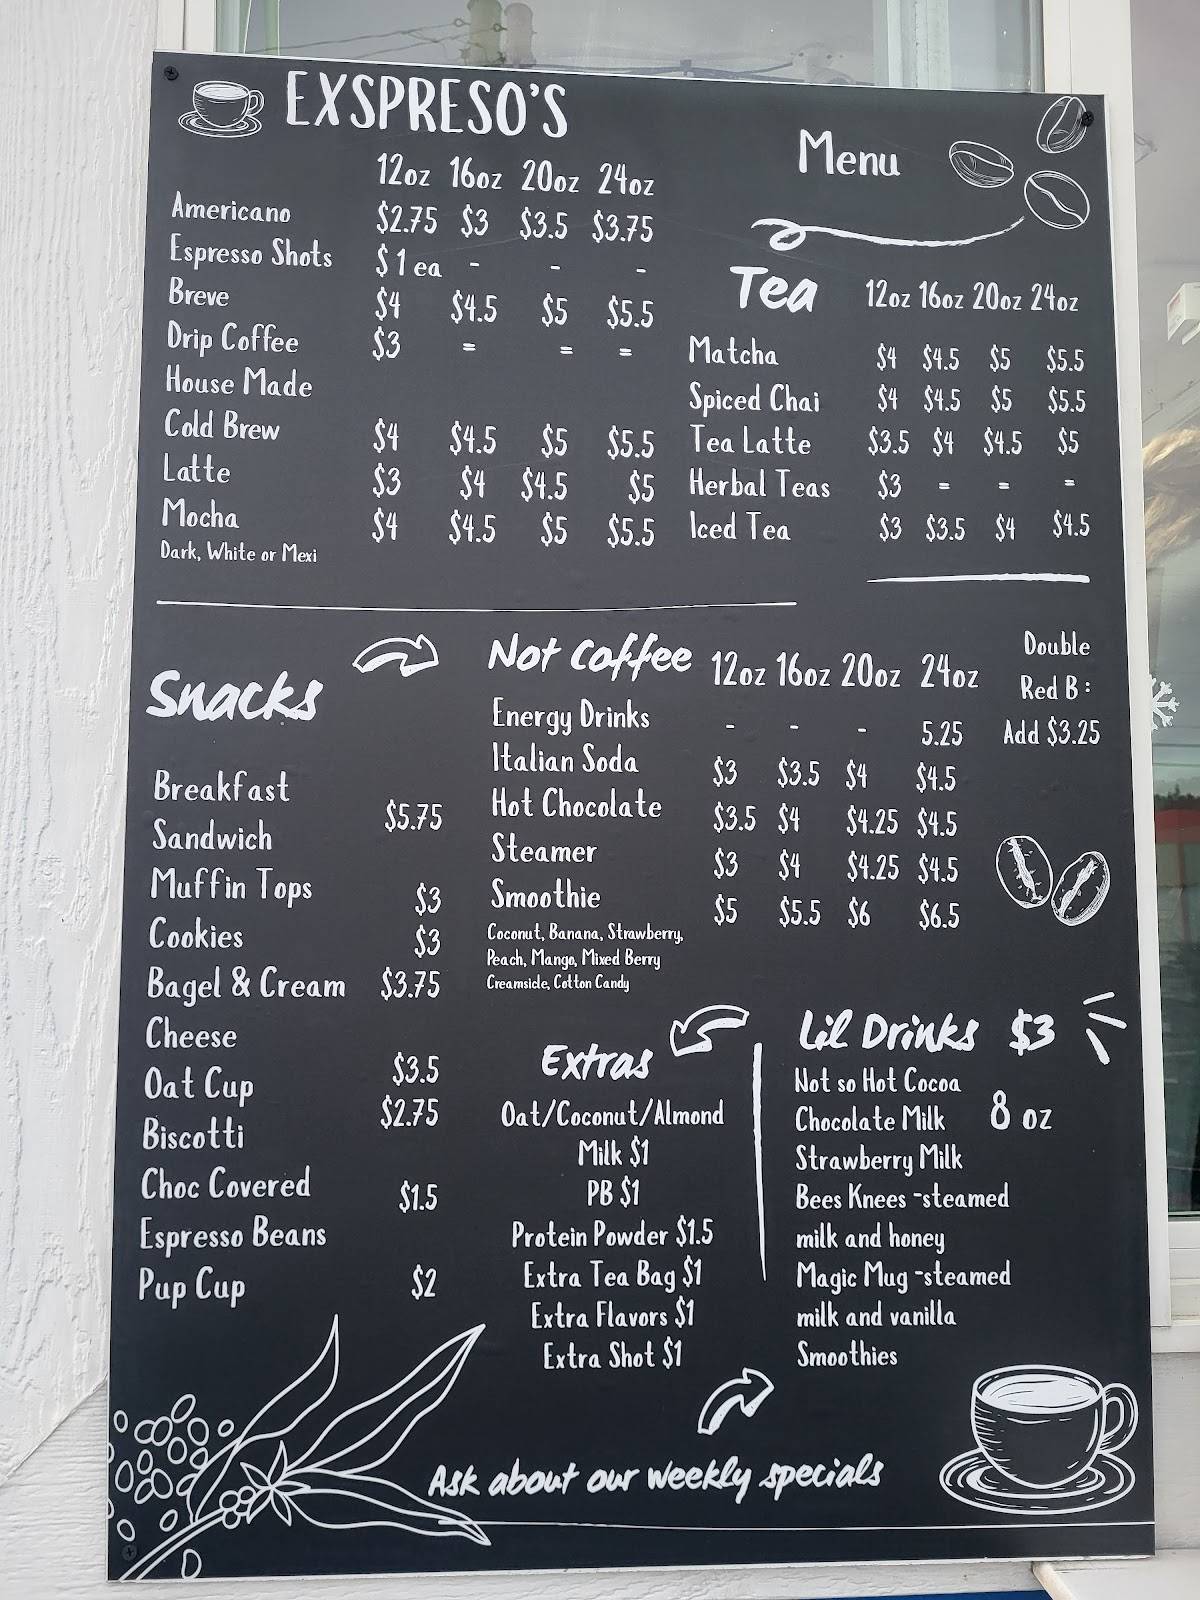 EXSPRESO'S
12oz 16oz 20oz 24oz
Americano $2.75 $3 $3.5 $3.75
Espresso Shots $1 ea - - -
Breve $4 $4.5 $5 $5.5
Drip Coffee $3 = = =
House Made
Cold Brew $4 $4.5 $5 $5.5
Latte $3 $4 $4.5 $5
Mocha $4 $4.5 $5 $5.5
Dark, White or Mexi
Menu
Tea 12oz 16oz 20oz 24oz
Matcha $4 $4.5 $5 $5.5
Spiced Chai $4 $4.5 $5 $5.5
Tea Latte $3.5 $4 $4.5 $5
Herbal Teas $3 = = =
Iced Tea $3 $3.5 $4 $4.5
Snacks
Breakfast
Sandwich $5.75
Muffin Tops $3
Cookies $3
Bagel & Cream $3.75
Cheese
Oat Cup $3.5
Biscotti $2.75
Choc Covered $1.5
Espresso Beans
Pup Cup $2
Not Coffee 12oz 16oz 20oz 24oz
Energy Drinks - - - 5.25
Italian Soda $3 $3.5 $4 $4.5
Hot Chocolate $3.5 $4 $4.25 $4.5
Steamer $3 $4 $4.25 $4.5
Smoothie $5 $5.5 $6 $6.5
Coconut, Banana, Strawberry,
Peach, Mango, Mixed Berry
Creamsicle, Cotton Candy
Double
Red B:
Add $3.25
Extras
Oat/Coconut/Almond
Milk $1
PB $1
Protein Powder $1.5
Extra Tea Bag $1
Extra Flavors $1
Extra Shot $1
Lil Drinks $3
Not so Hot Cocoa
Chocolate Milk 8 oz
Strawberry Milk
Bees Knees -steamed
milk and honey
Magic Mug -steamed
milk and vanilla
Smoothies
Ask about our weekly specials